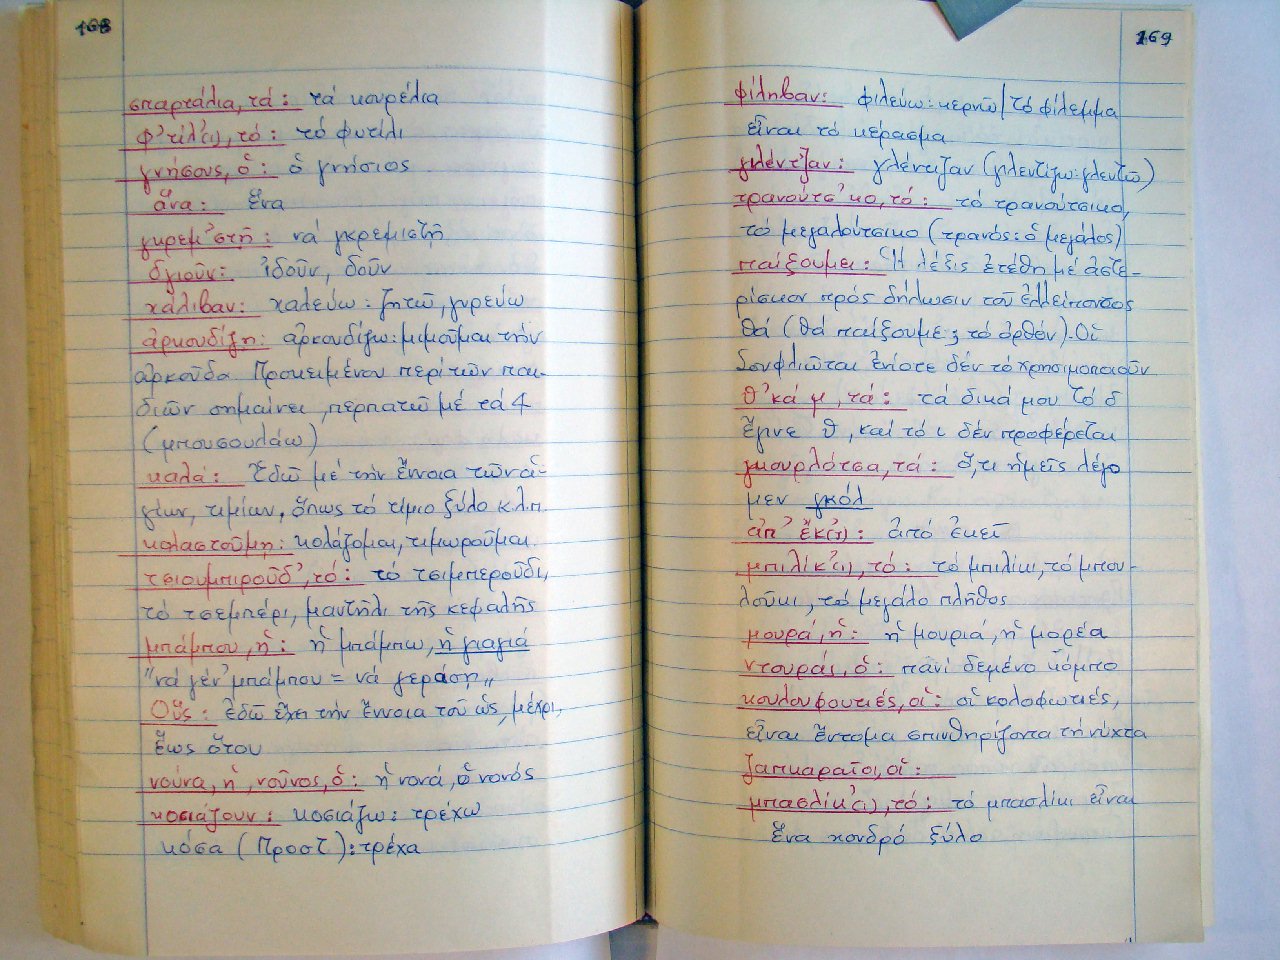 168
σπαρτάλια, τά: τά κουρέλια
φ'τίλ'(ι), τό: τό φυτίλι
γνήσους, ὁ: ὁ γνήσιος
ἅνα: ἕνα
γκρεμ'στῇ: νά γκρεμιστῇ
διοῦν: ἰδοῦν, δοῦν
χάλιβαν: χαλεύω: ζητῶ, γυρεύω
ἀρκουδίζῃ: ἀρκουδίζω: μιμοῦμαι τήν
ἀρκούδα. Προκειμένου περί τῶν παι-
διῶν σημαίνει, περπατῶ μέ τά 4
(μπουσουλάω)
καλά: Ἐδῶ μέ τήν ἔννοια τῶν ἁ-
γίων, τιμίων, ὅπως τό τίμιο ξύλο κ.λ.π.
κολαστοῦμῃ: κολάζομαι, τιμωροῦμαι.
τσιουμπιροῦδ', τό: τό τσιμπεροῦδι,
τό τσεμπέρι, μαντήλι τῆς κεφαλῆς
μπάμπου, ἡ: ἡ μπάμπω, ἡ γιαγιά
"νά γέν' μπάμπου = νά γεράσῃ„
Οὕς: ἐδῶ ἔχει τήν ἔννοια τοῦ ὡς, μέχρι,
ἕως ὅτου
νούνα, ἡ, νοῦνος, ὁ: ἡ νονά, ὁ νονός
κοσιάζουν: κοσιάζω: τρέχω
κόσα (Προστ): τρέχα
169
φίληβαν: φιλεύω: κερνῶ/τό φίλεμμα
εἶναι τό κέρασμα
γλέντζαν: γλέντιζαν (γλεντίζω: γλεντῶ)
τρανούτσ'κο, τό: τό τρανούτσικο,
τό μεγαλούτσικο (τρανός: ὁ μεγάλος)
παίξουμει: Ἡ λέξις ἐτέθη μέ ἀστε-
ρίσκον πρός δήλωσιν τοῦ ἐλλείποντος
θά (θά παίξουμε; τό ὀρθόν). Οἱ
Σουφλιῶται ἐνίοτε δέν τό χρησιμοποιοῦν
θ'κά μ, τά: τά δικά μου τό δ
ἔγινε θ, καί τό ι δέν προφέρεται
γκουρλότσα, τά: ὅ,τι ἡμεῖς λέγο
μεν γκόλ
ἀπ' ἔκ(ι): ἀπό ἐκεῖ
μπιλίκ'(ι), τό: τό μπιλίκι, τό μπου-
λούκι, τό μεγάλο πλῆθος
μουρά, ἡ: ἡ μουριά, ἡ μορέα
ντουράι, ὁ: πανί δεμένο κόμπο
κουλουφουτιές, οἱ: οἱ κολοφωτιές,
εἶναι ἔντομα σπινθηρίζοντα τή νύχτα
ζαπκαραῖοι, οἱ:
μπασλίκ'(ι), τό: τό μπασλίκι εἶναι
ἕνα χονδρό ξύλο